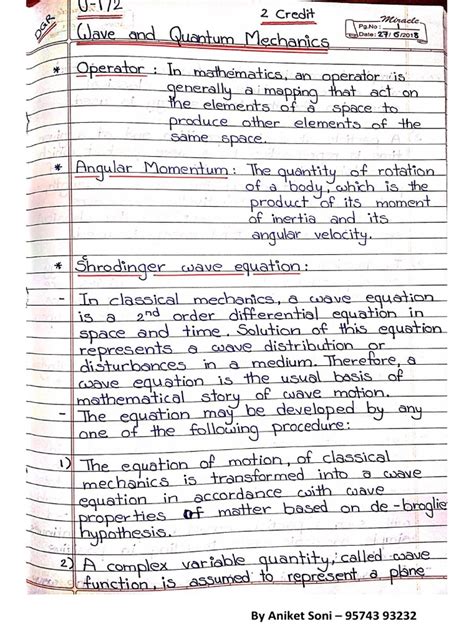 U-1/2
2 Credit
DGR
Miracle
Pg.No: 1
Date: 27/6/2018
Wave and Quantum Mechanics
* Operator : In mathematics, an operator is
generally a mapping that act on
the elements of a space to
produce other elements of the
same space.
* Angular Momentum : The quantity of rotation
of a body, which is the
product of its moment
of inertia and its
angular velocity.
* Shrodinger wave equation :
- In classical mechanics, a wave equation
is a 2nd order differential equation in
space and time. Solution of this equation
represents a wave distribution or
disturbances in a medium. Therefore, a
wave equation is the usual basis of
mathematical story of wave motion.
- The equation may be developed by any
one of the following procedure:
1) The equation of motion, of classical
mechanics is transformed into a wave
equation in accordance with wave
properties of matter based on de-broglie
hypothesis.
2) A complex variable quantity, called wave
function, is assumed to represent a plane
By Aniket Soni – 95743 93232